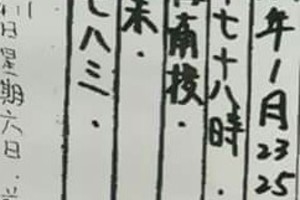 年1月23
25
七十八時.
南投.
未.
七八三.
川日星期六日.